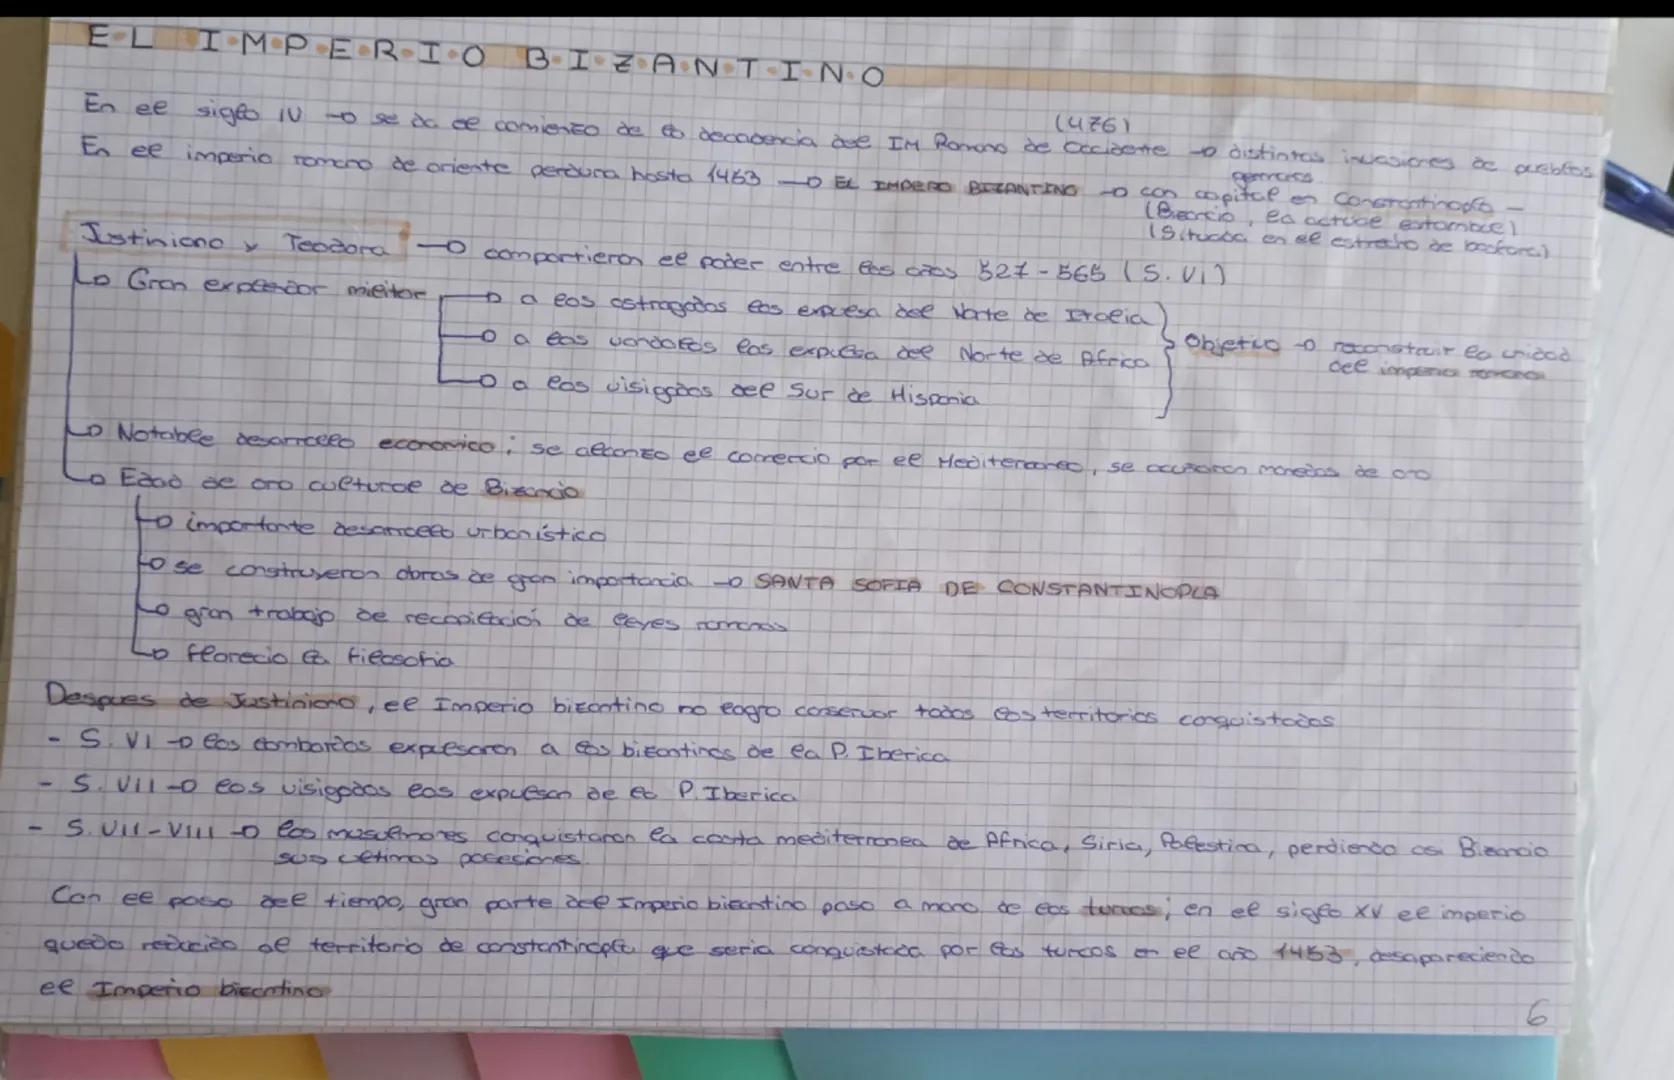 EL IMPERIO BIZANTINO
En el siglo IV → se da el comienzo de la decadencia del IM Romano de Occidente → distintas invasiones de pueblos
(476)
germanos
En el imperio romano de oriente perdura hasta 1453 → EL IMPERIO BIZANTINO → con capital en Constantinopla -
(Bizancio, la actual estambul)
(Situada en el estrecho de bosforo)
Justiniano y Teodora → compartieron el poder entre los años 527-565 (S. VI)
Gran expansor militar
→ a los ostrogodos los expulsa del Norte de Italia
→ a los vandalos los expulsa del Norte de Africa
→ a los visigodos del Sur de Hispania
Objetivo → reconstruir la unidad
del imperio romano
→ Notable desarrollo economico; se alcanzo el comercio por el Mediterraneo, se acuñaron monedas de oro
→ Edad de oro cultural de Bizancio
→ importante desarrollo urbanístico
→ se construyeron obras de gran importancia → SANTA SOFIA DE CONSTANTINOPLA
→ gran trabajo de recopilación de leyes romanas
→ florecio la filosofia
Despues de Justiniano, el Imperio bizantino no logro conservar todos los territorios conquistados
- S. VI → los lombardos expulsaron a los bizantinos de la P. Iberica
- S. VII → los visigodos los expulsan de la P. Iberica
- S. VII-VIII → los musulmanes conquistaron la costa mediterranea de Africa, Siria, Palestina, perdiendo asi Bizancio
sus ultimas posesiones.
Con el paso del tiempo, gran parte del Imperio bizantino paso a mano de los turcos; en el siglo XV el imperio
quedo reducido al territorio de constantinopla que seria conquistada por los turcos en el año 1453, desapareciendo
el Imperio bizantino
6